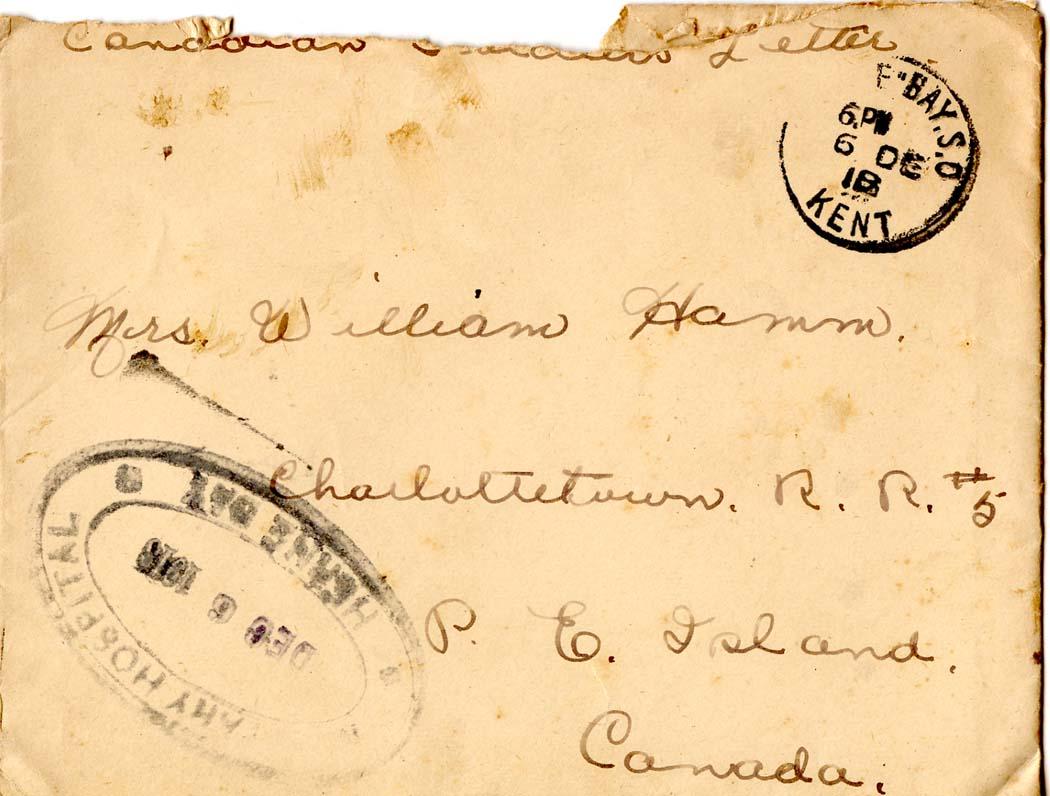 Canadian Soldiers Letter
E BAY.S.O
6.PM
6 DE
18
KENT
Mrs. William Hamm.
Charlottetown. R. R. #5
P. E. Island.
Canada.
HERNE BAY
DEC 6 1918
HOSPITAL